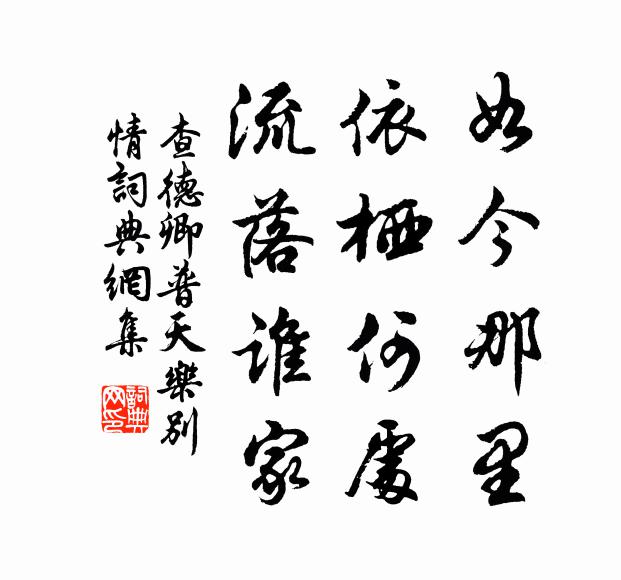 如今那里
依栖何處
流落谁家
查德卿普天樂别
情詞典網集
詞典
网印